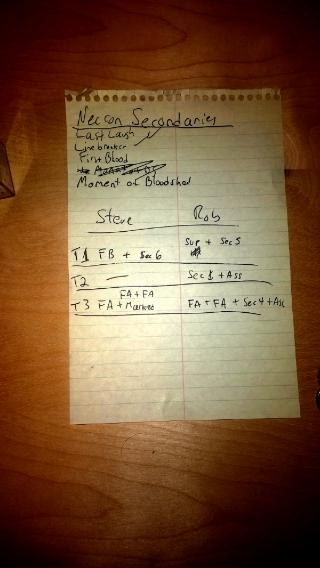 Necron Secondaries
Last Laugh
Linebreaker
First Blood
Moment of Bloodshed
Steve Rob
T1 FB + Sec 6 Sup + Sec 5
T2 — Sec 1 + Ass
FA + FA
T3 FA + FA + FA + Sec 4 + Ass